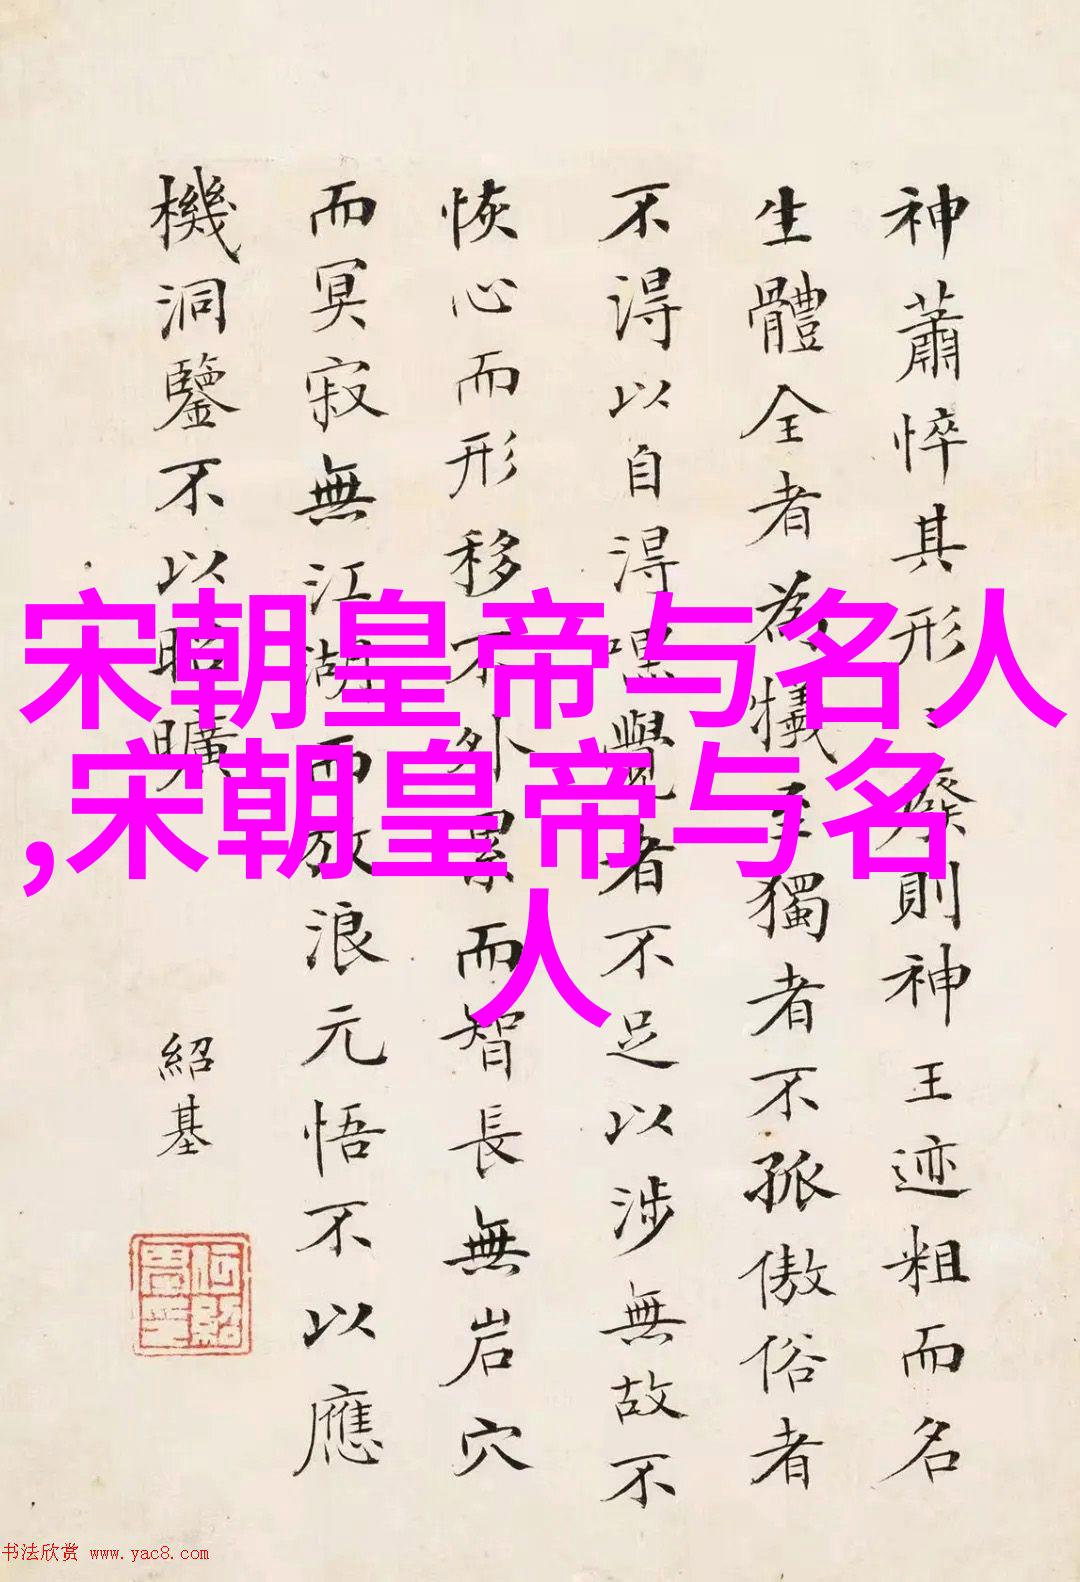 神蕭悴其形〻廢則神王迹粗而名
生體全者為犧至獨者不孤傲俗者
不得以自得嘿覺者不足以涉無故不
恢心而形移不外累而智長無岩穴
而冥寂無江湖而放浪元悟不以應
機洞鑒不以昭曠
紹基
宋朝皇帝与名人
,宋朝皇帝与名
人
书法欣赏 www.yac8.com